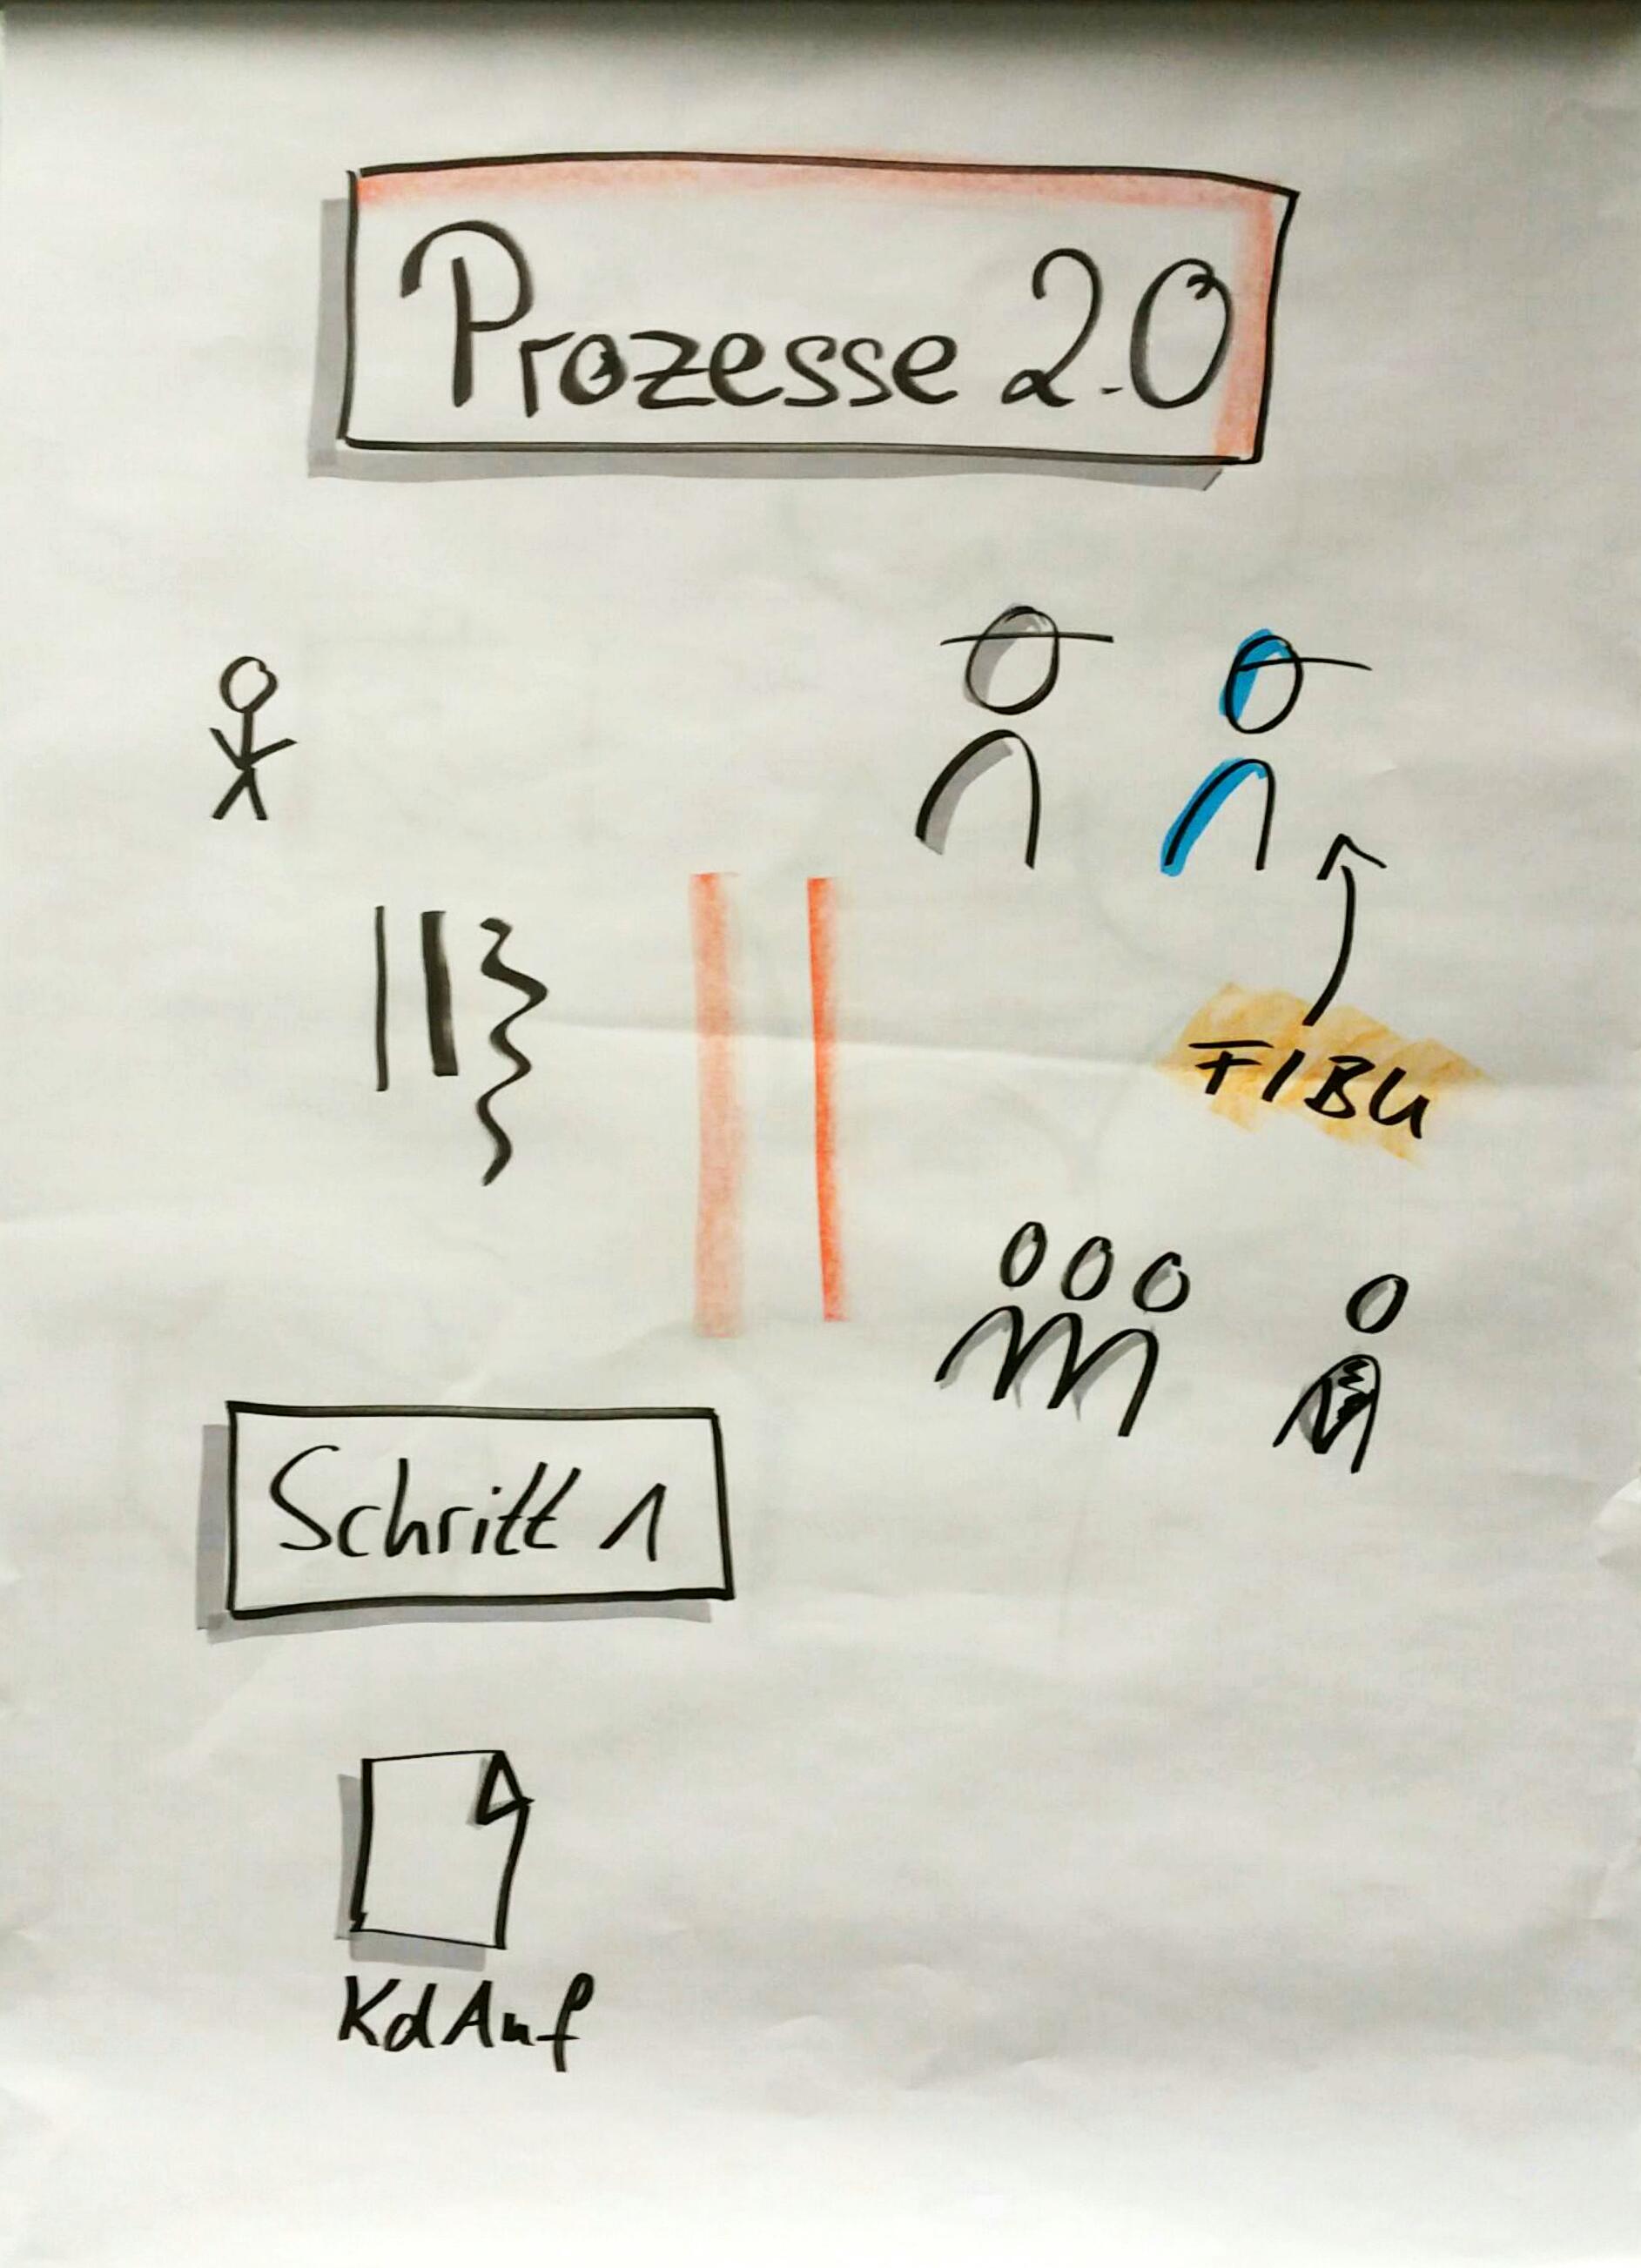 Prozesse 2.0
FIBU
Schritt 1
KdAuf